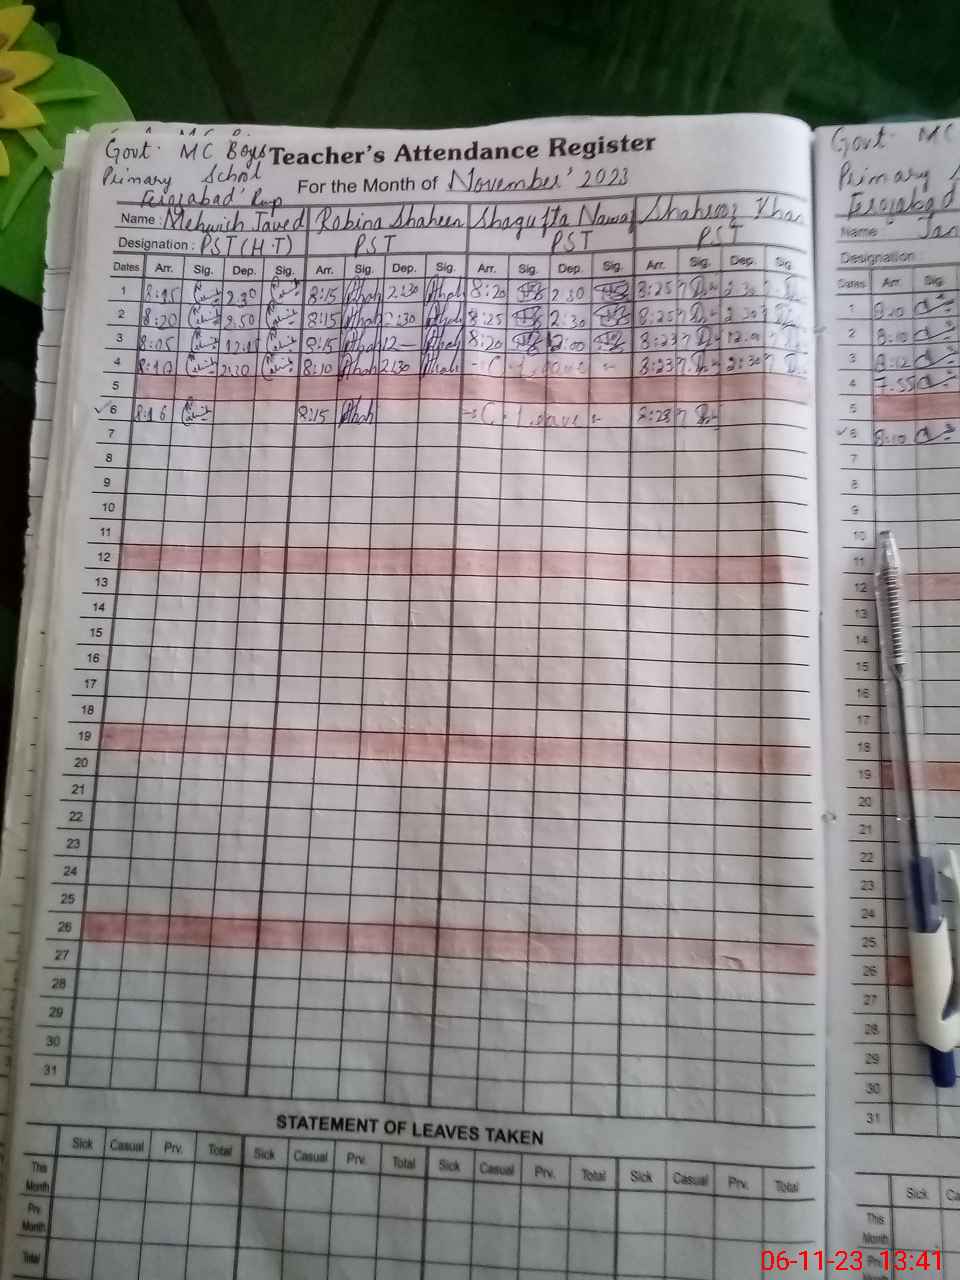 Govt. MC Boys Teacher's Attendance Register
Primary School For the Month of November' 2023
Name : Mehwish Javed Robina Shaheen Shagufta Nawaz Shahroz Khan
Designation : PST (H.T) PST PST PST
Dates Arr. Sig. Dep. Sig. Arr. Sig. Dep. Sig. Arr. Sig. Dep. Sig. Arr. Sig. Dep. Sig.
1 8:15 2:30 8:15 2:30 8:20 2:30 8:25 2:30
2 8:20 2:30 8:15 2:30 8:25 2:30 8:25 2:30
3 8:05 12:05 8:15 12 — 8:20 2:00 8:23 12:00
4 8:10 2:30 8:10 2:30 - C. Leave - 8:23 2:30
5
6 8:16 8:15 C. Leave 8:28
7
8
9
10
11
12
13
14
15
16
17
18
19
20
21
22
23
24
25
26
27
28
29
30
31
STATEMENT OF LEAVES TAKEN
Sick Casual Prv. Total Sick Casual Prv. Total Sick Casual Prv. Total Sick Casual Prv. Total
This
Month
Prv.
Month
Total
Govt. MC
Primary
Name :
Designation :
Dates Arr. Sig.
1 8:20
2 8:10
3 8:12
4 7:55
5
6 8:10
7
8
9
10
11
12
13
14
15
16
17
18
19
20
21
22
23
24
25
26
27
28
29
30
31
Sick Ca
This
Month
06-11-23 13:41